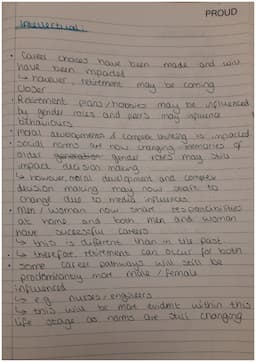 PROUD
Intellectual:
• Career choices have been made and will
have been impacted
↳ however, retirement may be coming
closer
• Retirement plans/hobbies may be influenced
by gender roles and peers may influence
behaviours
• Moral developments & complex thinking is impacted
• Social norms are now changing memories of
older generation gender roles may still
impact decision making
↳ however, moral development and complex
decision making may now start to
change due to media influences
• Men / woman now share responsibilities
at home and both men and woman
have successful careers
↳ this is different than in the past
↳ therefore, retirement can occur for both
• Some career pathways will still be
predominantly more male / female
influenced
↳ e.g. nurses / engineers
↳ this will be more evident within this
life stage as norms are still changing